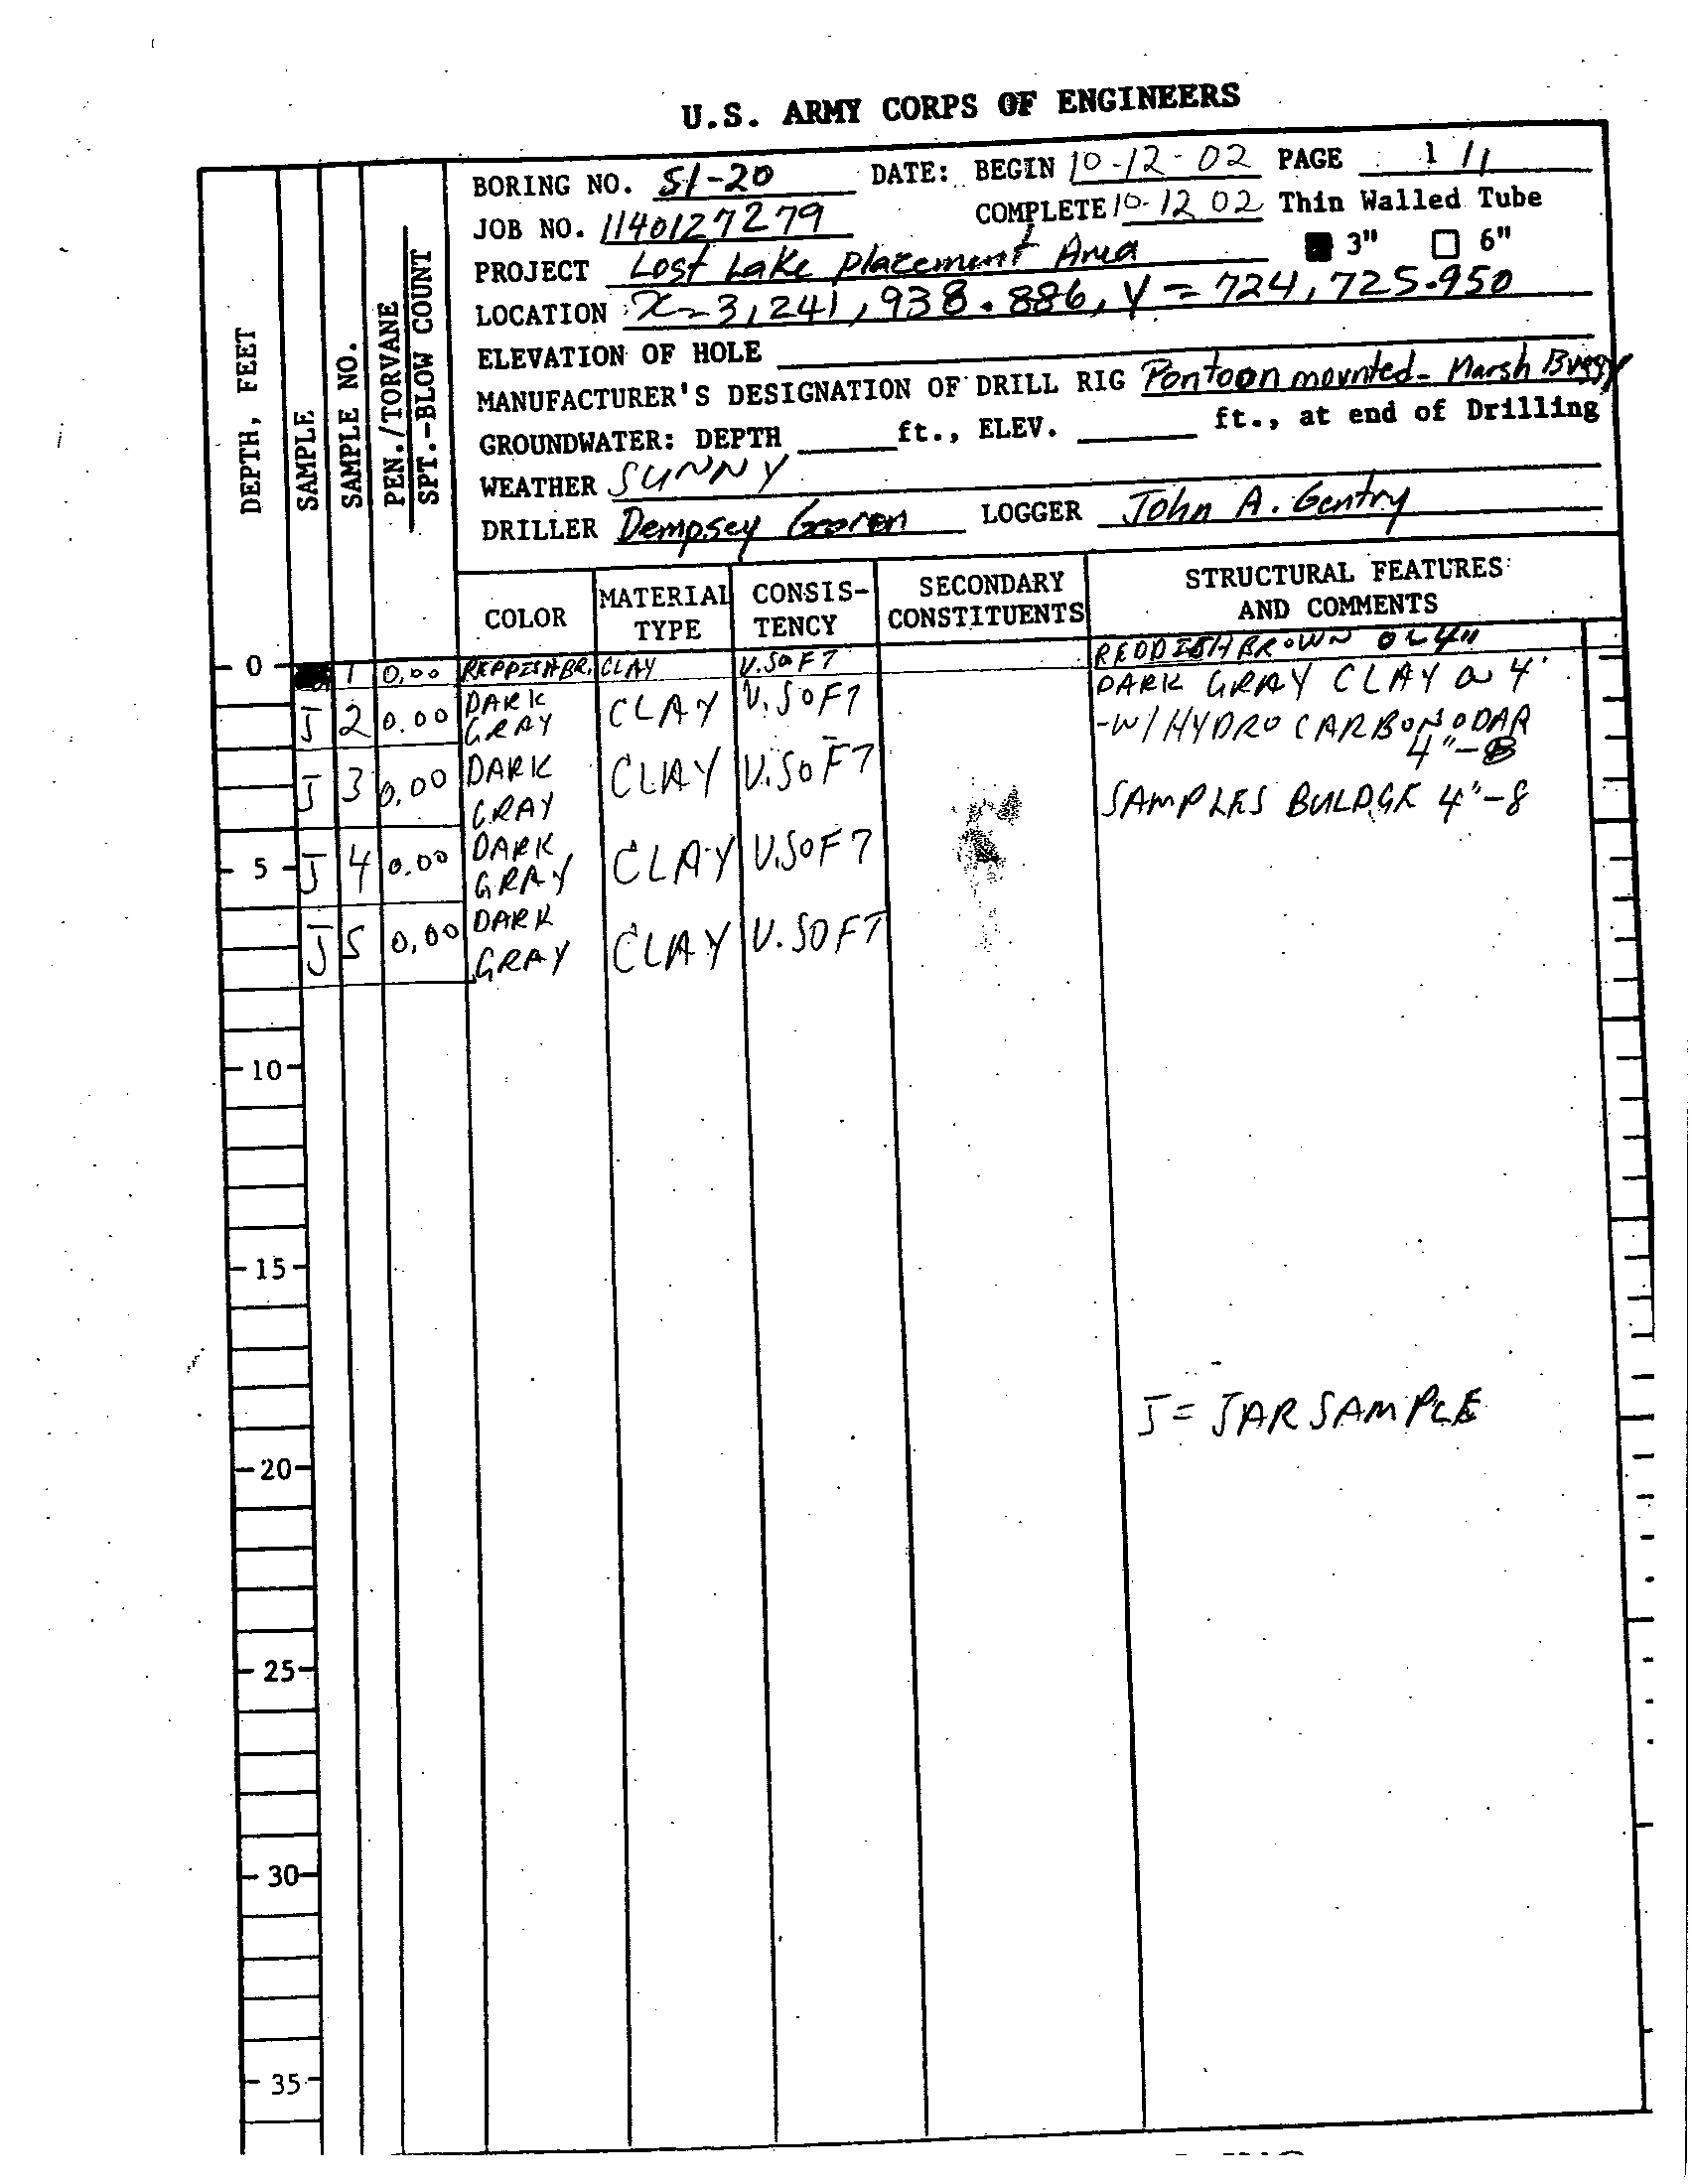 U.S. ARMY CORPS OF ENGINEERS
DEPTH, FEET
SAMPLE
SAMPLE NO.
PEN./TORVANE
SPT.-BLOW COUNT
BORING NO. SI-20 DATE: BEGIN 10-12-02 PAGE 1/1
JOB NO. 1140127279 COMPLETE 10-12 02 Thin Walled Tube
PROJECT Lost Lake Placement Area 3" 6"
LOCATION X=3,241,938.886, Y=724,725.950
ELEVATION OF HOLE
MANUFACTURER'S DESIGNATION OF DRILL RIG Pontoon mounted- Marsh Buggy
GROUNDWATER: DEPTH ft., ELEV. ft., at end of Drilling
WEATHER SUNNY
DRILLER Dempsey LOGGER John A. Gentry
COLOR MATERIAL TYPE CONSIS-TENCY SECONDARY CONSTITUENTS STRUCTURAL FEATURES AND COMMENTS
0 1 0.00 REDDISH BR. CLAY V.SOFT REDDISH BROWN 0-4"
J 2 0.00 DARK GRAY CLAY V.SOFT DARK GRAY CLAY @ 4'
-W/HYDROCARBON ODAR
4"-8
J 3 0.00 DARK GRAY CLAY V.SOFT SAMPLES BULDGE 4'-8
5 J 4 0.00 DARK GRAY CLAY V.SOFT
J 5 0.00 DARK GRAY CLAY V.SOFT
10
15
J = JAR SAMPLE
20
25
30
35